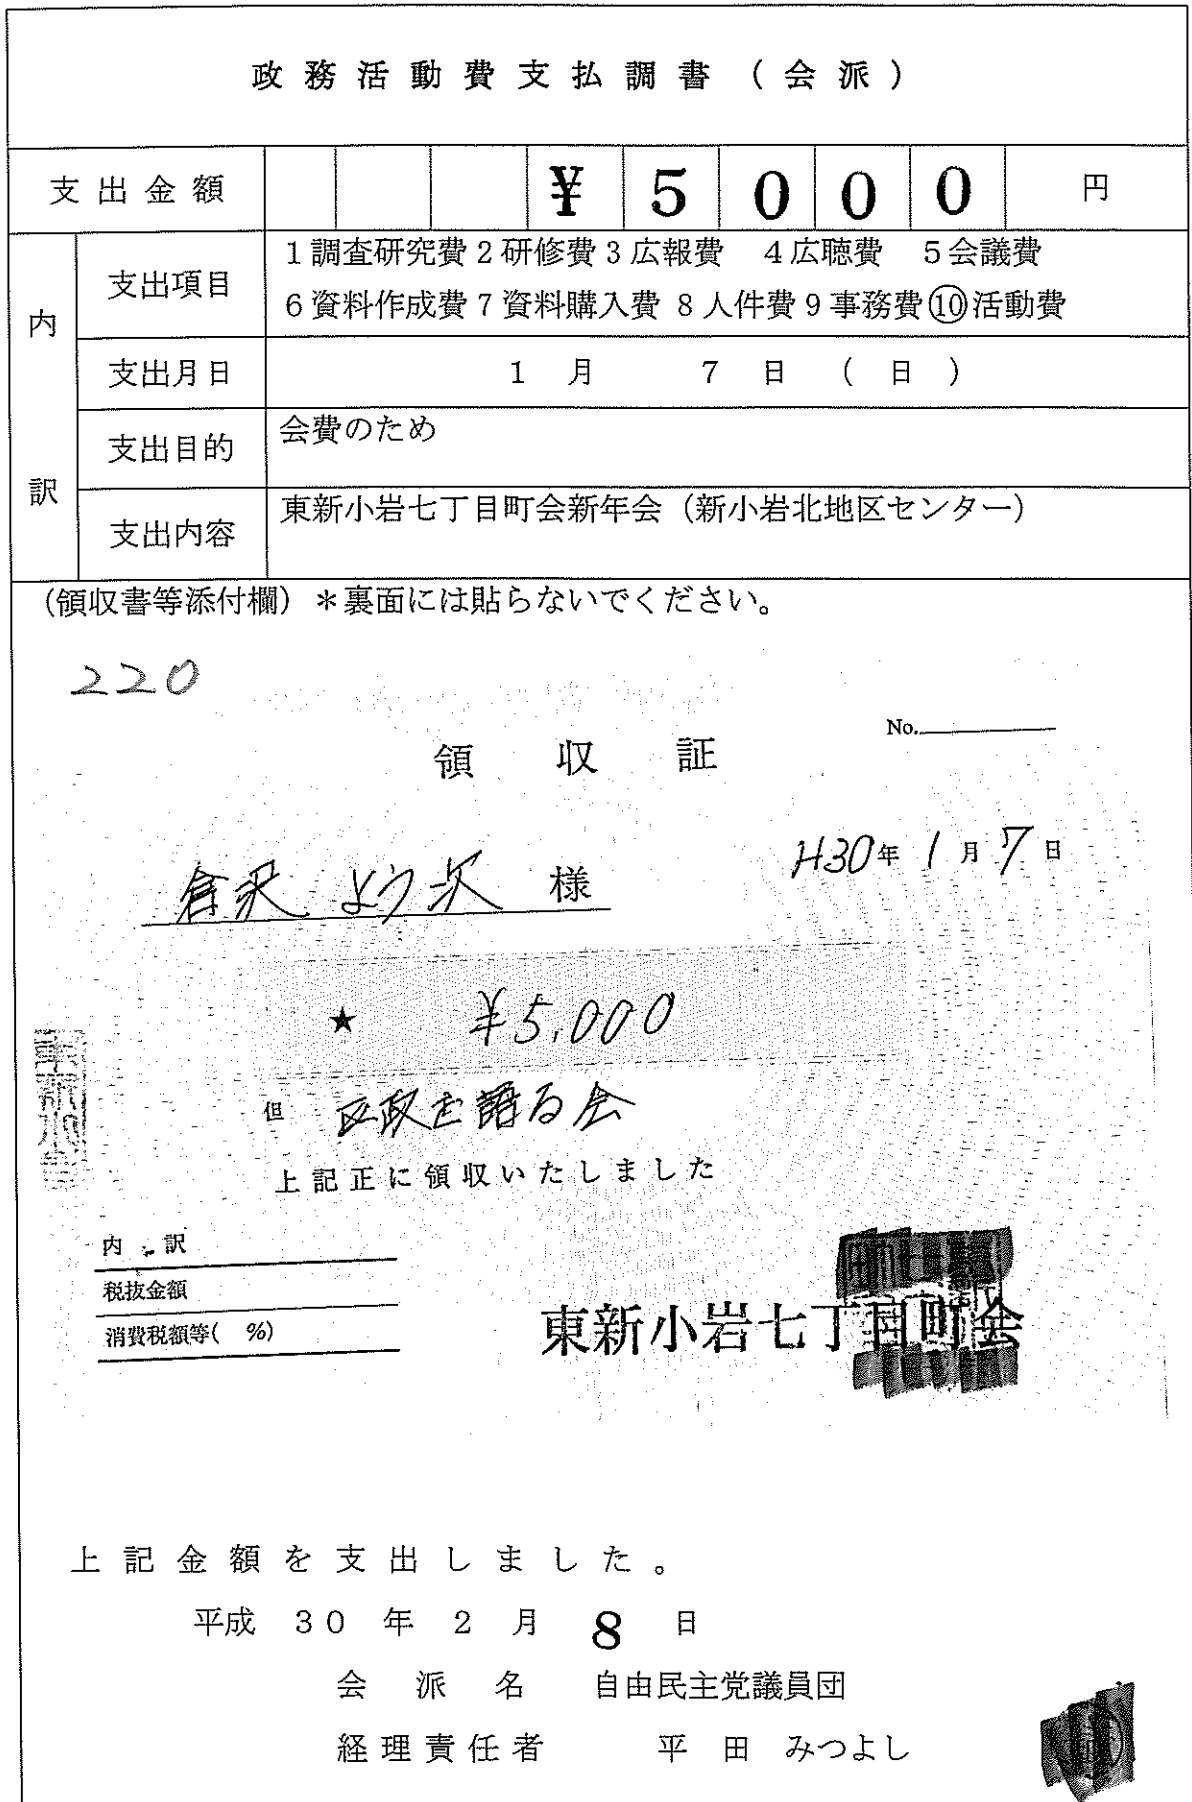 政務活動費支払調書（会派）
支出金額 ¥5000 円
内訳
支出項目 1調査研究費2研修費3広報費 4広聴費 5会議費
6資料作成費7資料購入費 8人件費9事務費⑩活動費
支出月日 1月 7日（日）
支出目的 会費のため
支出内容 東新小岩七丁目町会新年会（新小岩北地区センター）
（領収書等添付欄）＊裏面には貼らないでください。
220
No.
領収証
H30年1月7日
倉沢よう次 様
★ ¥5,000
但 区政を語る会
上記正に領収いたしました
内訳
税抜金額
消費税額等( %)
東新小岩七丁目町会
上記金額を支出しました。
平成 30年 2月 8日
会派名 自由民主党議員団
経理責任者 平田 みつよし